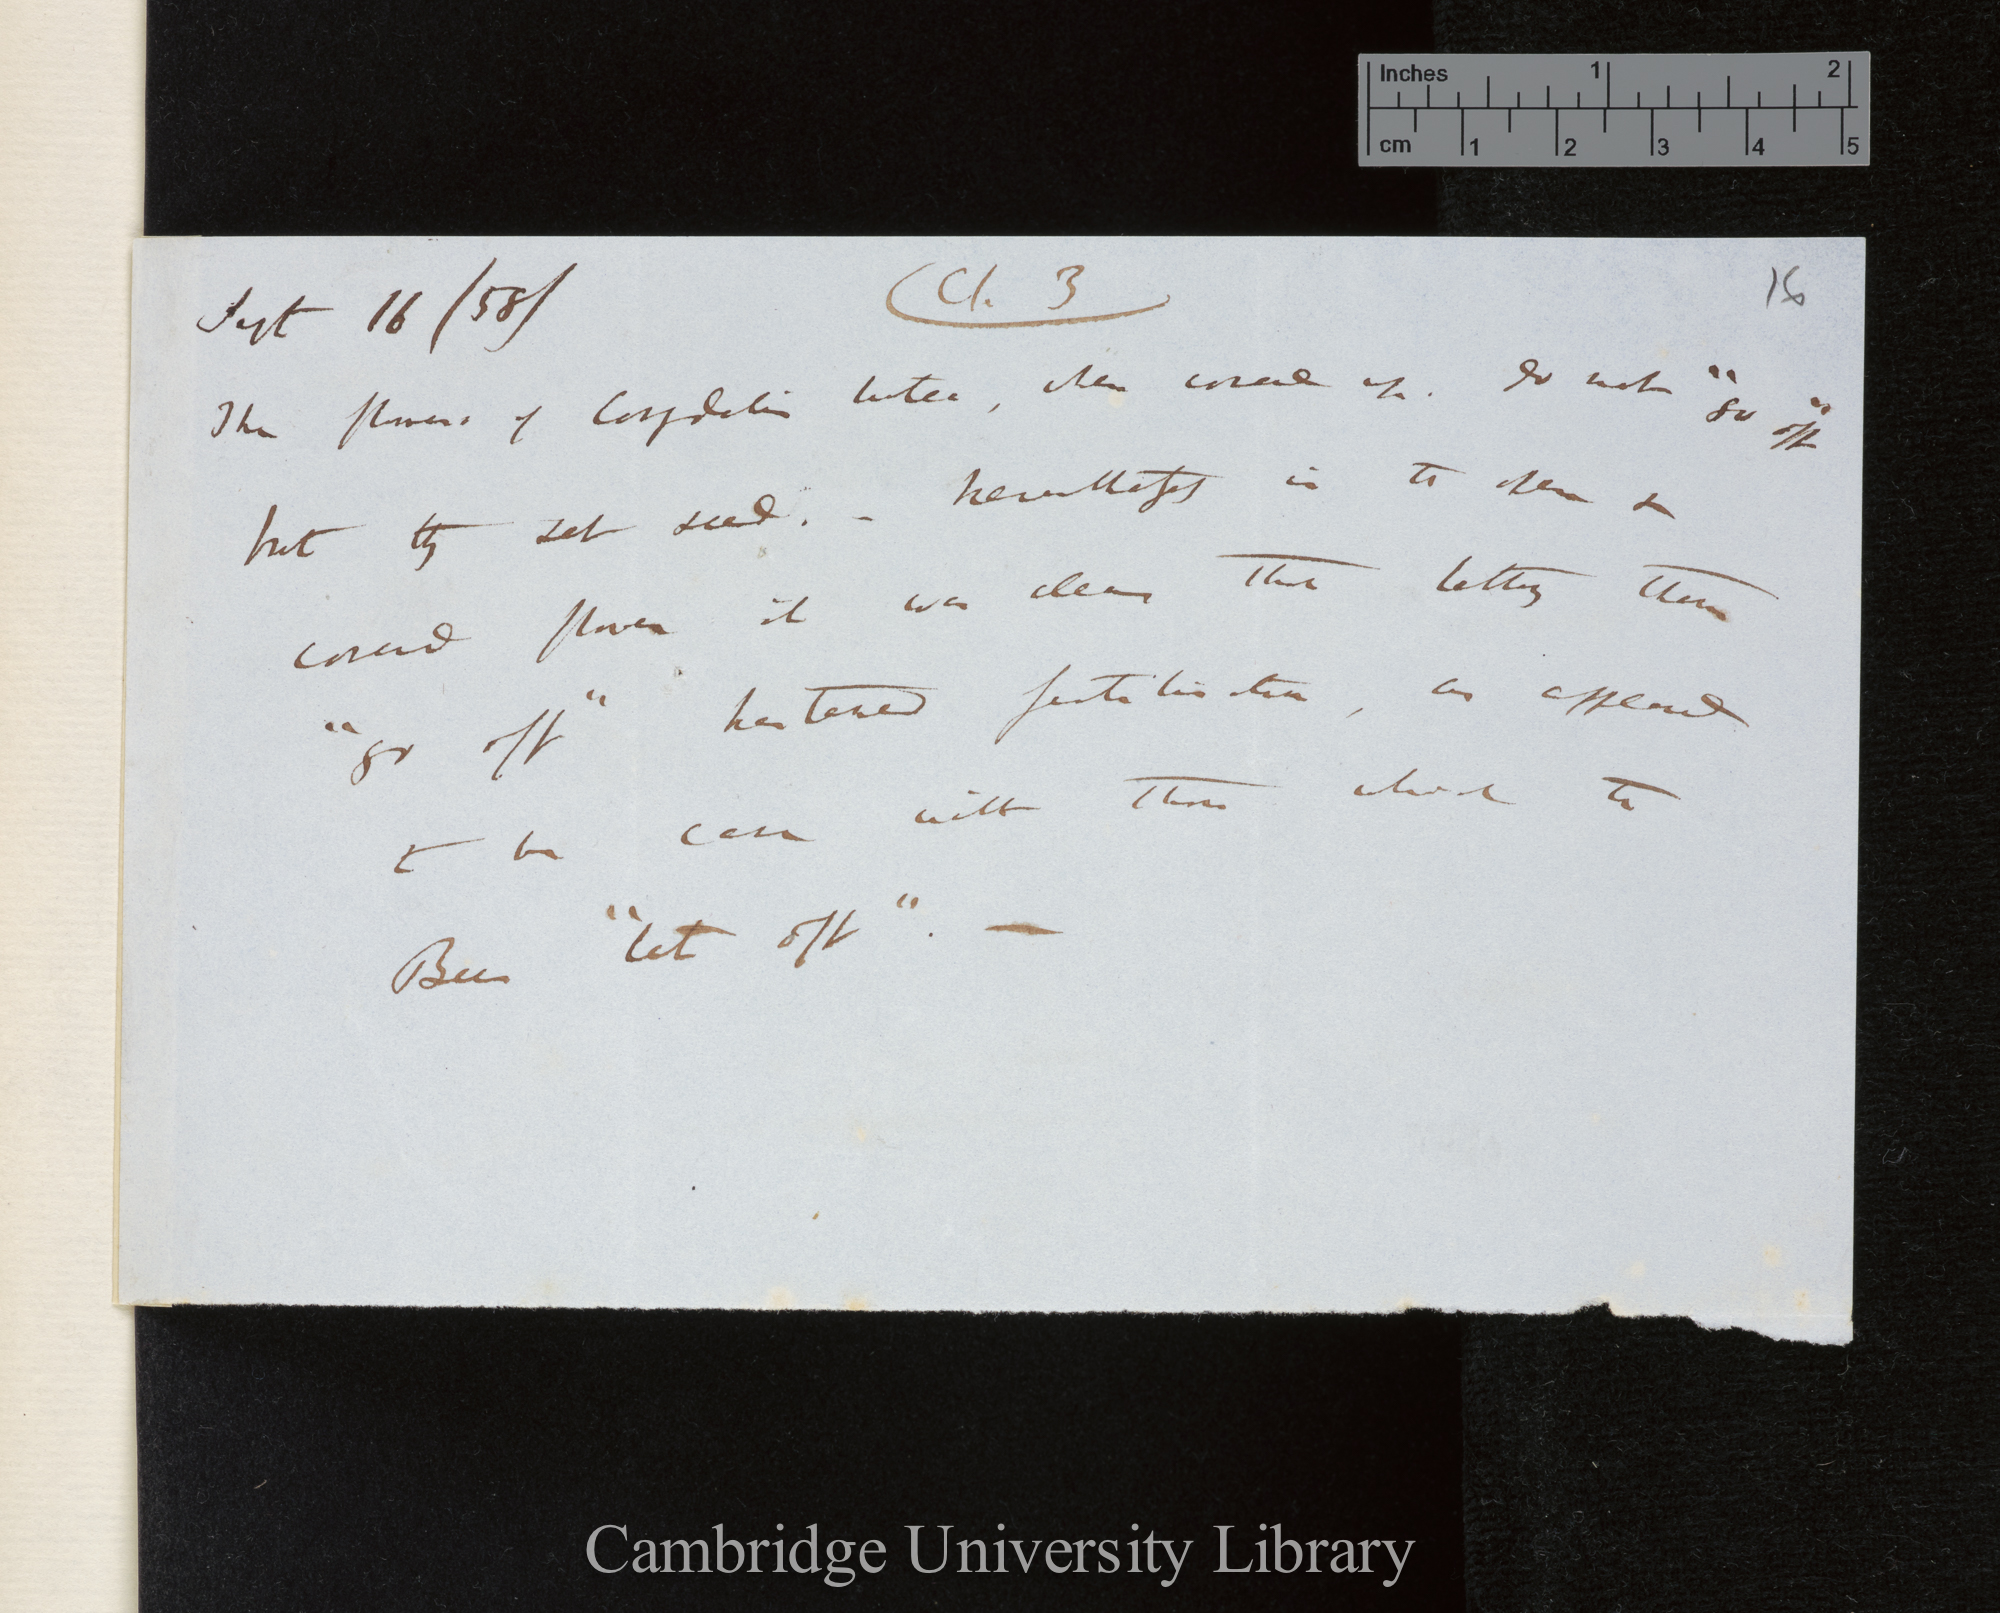 Inches 1 2
cm 1 2 3 4 5
Sept 16 /58/
Ch. 3
16
The flowers of Corydalis lutea, when covered up. do not "go off"
but they set seed. – Nevertheless in to
covered flower it was clear that letting them
"go off" hastened fertilisation, as appeared
to be case with those which the
Bees "let off". —
Cambridge University Library